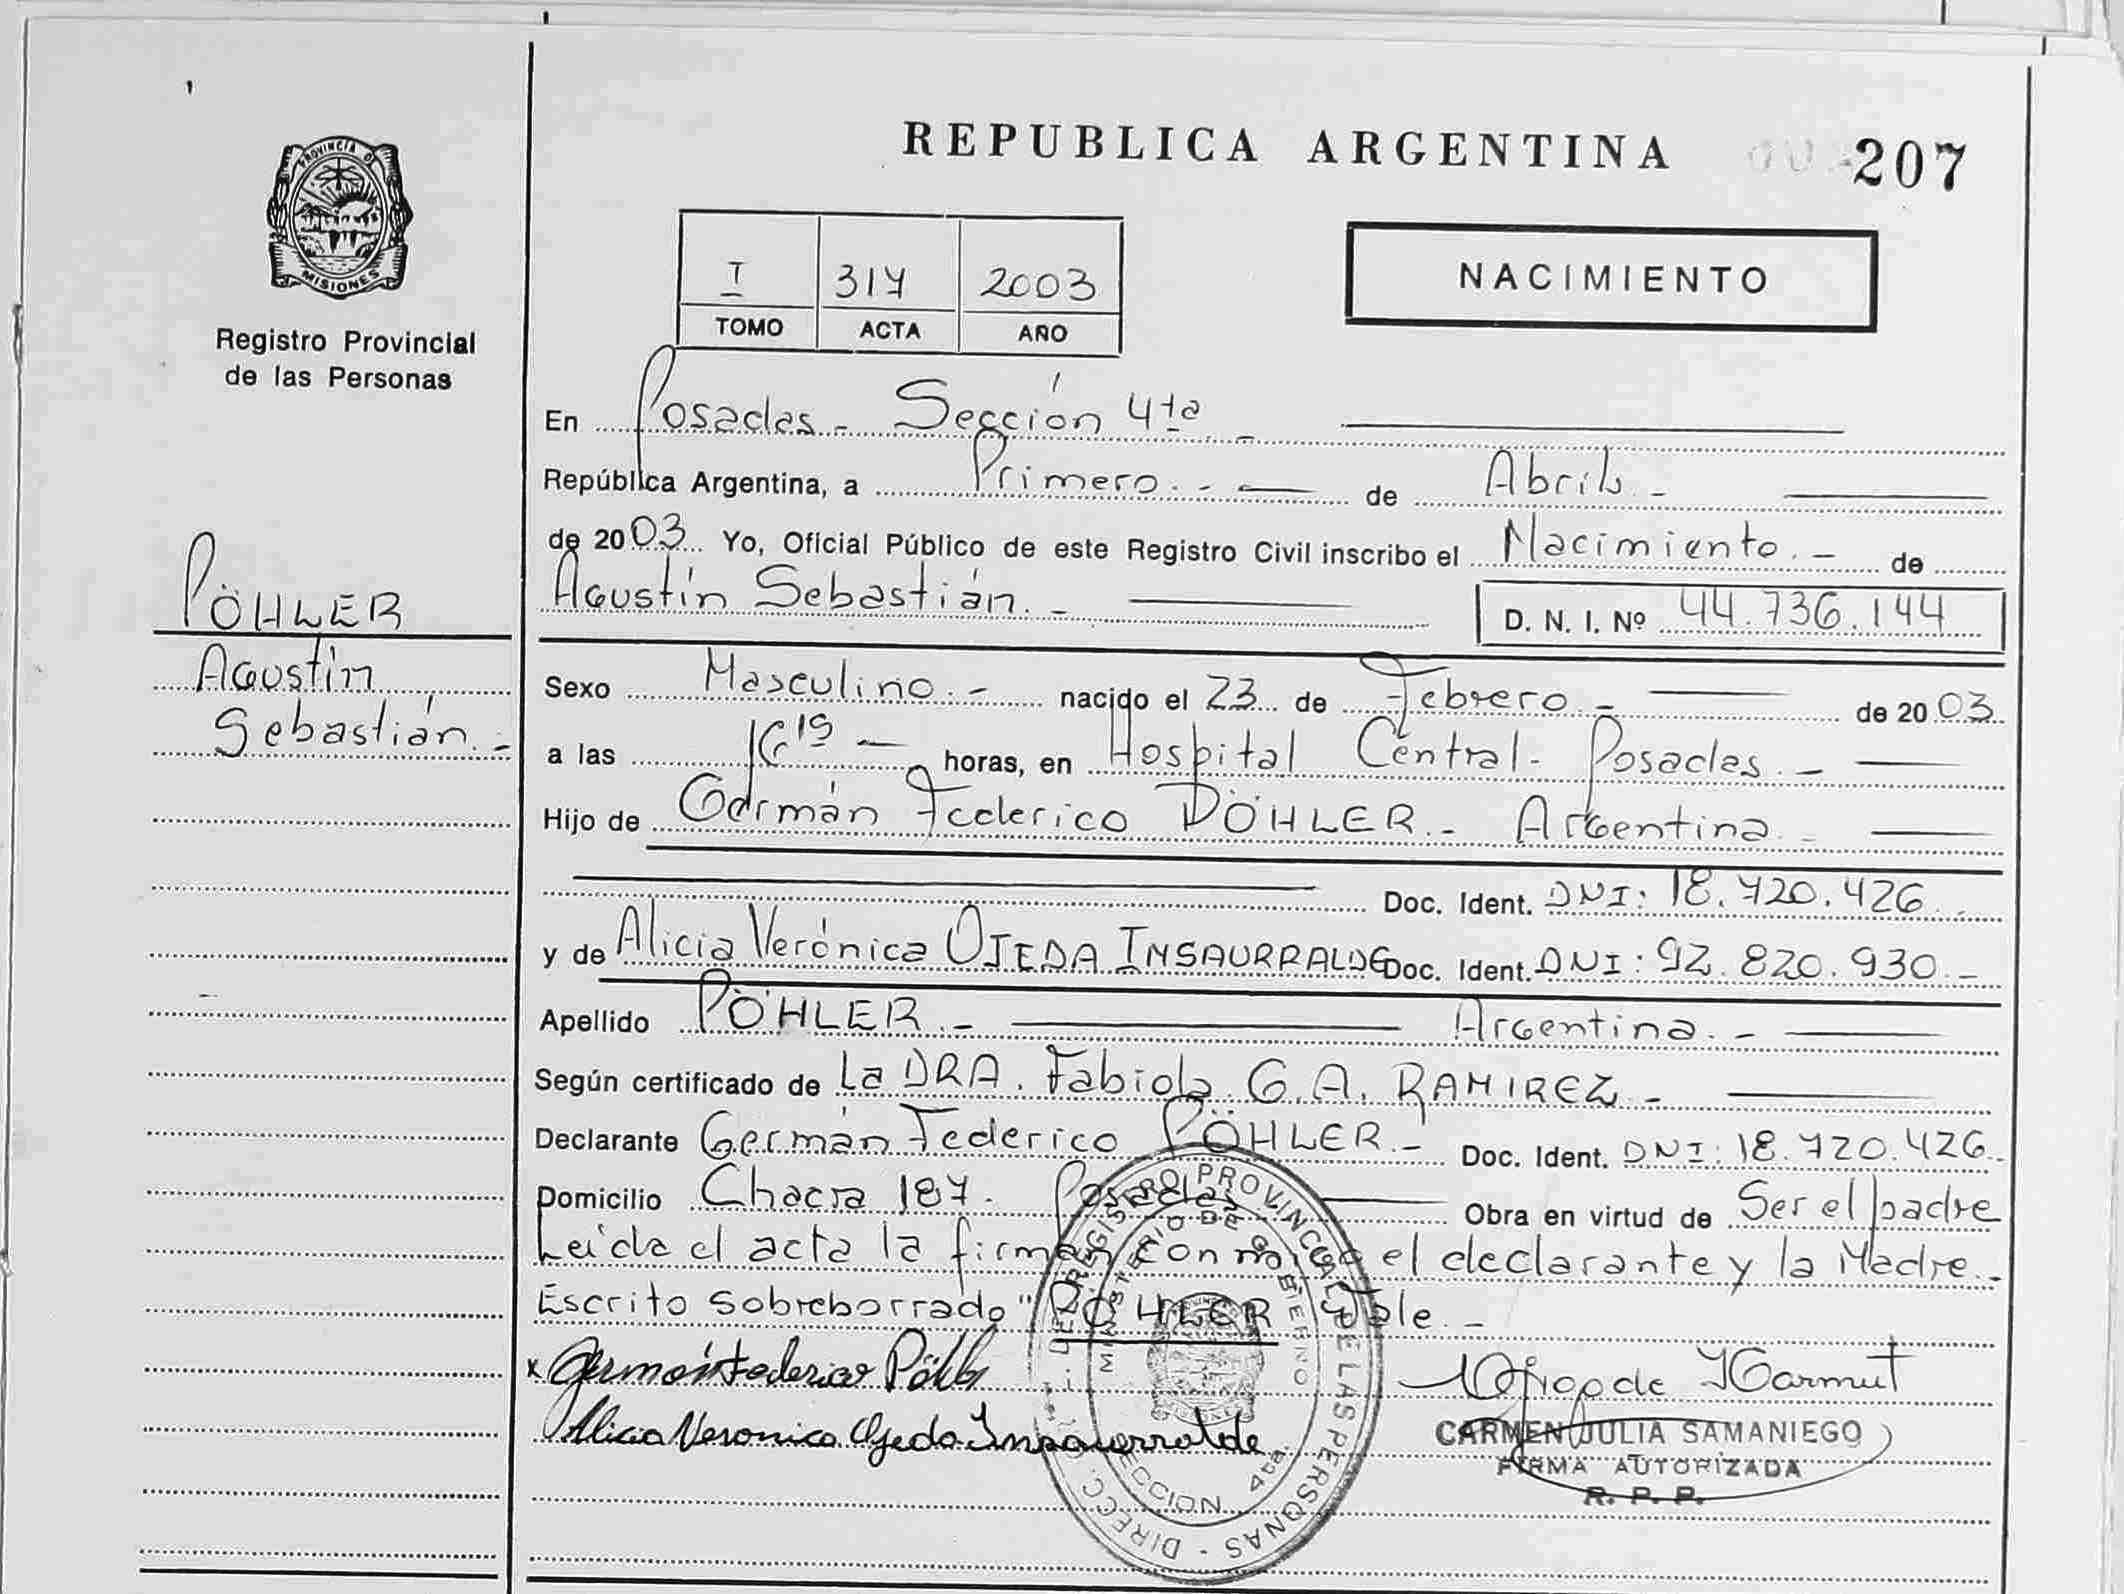 REPUBLICA ARGENTINA 207
PROVINCIA DE
MISIONES
Registro Provincial
de las Personas
I 317 2003
TOMO ACTA AÑO
NACIMIENTO
En Posadas.- Sección 4ta -
República Argentina, a Primero.- - de Abril.-
de 2003 Yo, Oficial Público de este Registro Civil inscribo el Nacimiento.- de
Agustín Sebastián.-
D. N. I. Nº 44.736.144
PÖHLER
Agustín
Sebastián.-
Sexo Masculino.- nacido el 23 de Febrero.- de 2003
a las 16 15 - horas, en Hospital Central- Posadas.-
Hijo de Germán Federico PÖHLER.- Argentina.-
Doc. Ident. DNI: 18.720.426
y de Alicia Verónica OJEDA INSAURRALDE Doc. Ident. DNI: 92.820.930.-
Apellido PÖHLER.- Argentina.-
Según certificado de La DRA. Fabiola G.A. RAMIREZ.-
Declarante Germán Federico PÖHLER.- Doc. Ident. DNI: 18.720.426
Domicilio Chacra 187. Posadas Obra en virtud de Ser el padre
Leída el acta la firman conmigo el declarante y la Madre.-
Escrito sobreborrado "PÖHLER Vale.-
x German Federico Pöhler
Alicia Veronica Ojeda Insaurralde
CARMEN JULIA SAMANIEGO
FIRMA AUTORIZADA
R. P. P.
DIRECC. DEL REGISTRO PROVINCIAL DE LAS PERSONAS -
MINISTERIO DE GOBIERNO
SECCION 4ta.